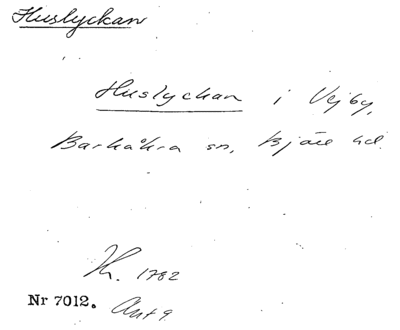 Huslyckan
Huslyckan i Vejby,
Barkåkra sn, Bjäre hd.
H. 1782
Nr 7012. Akt 9